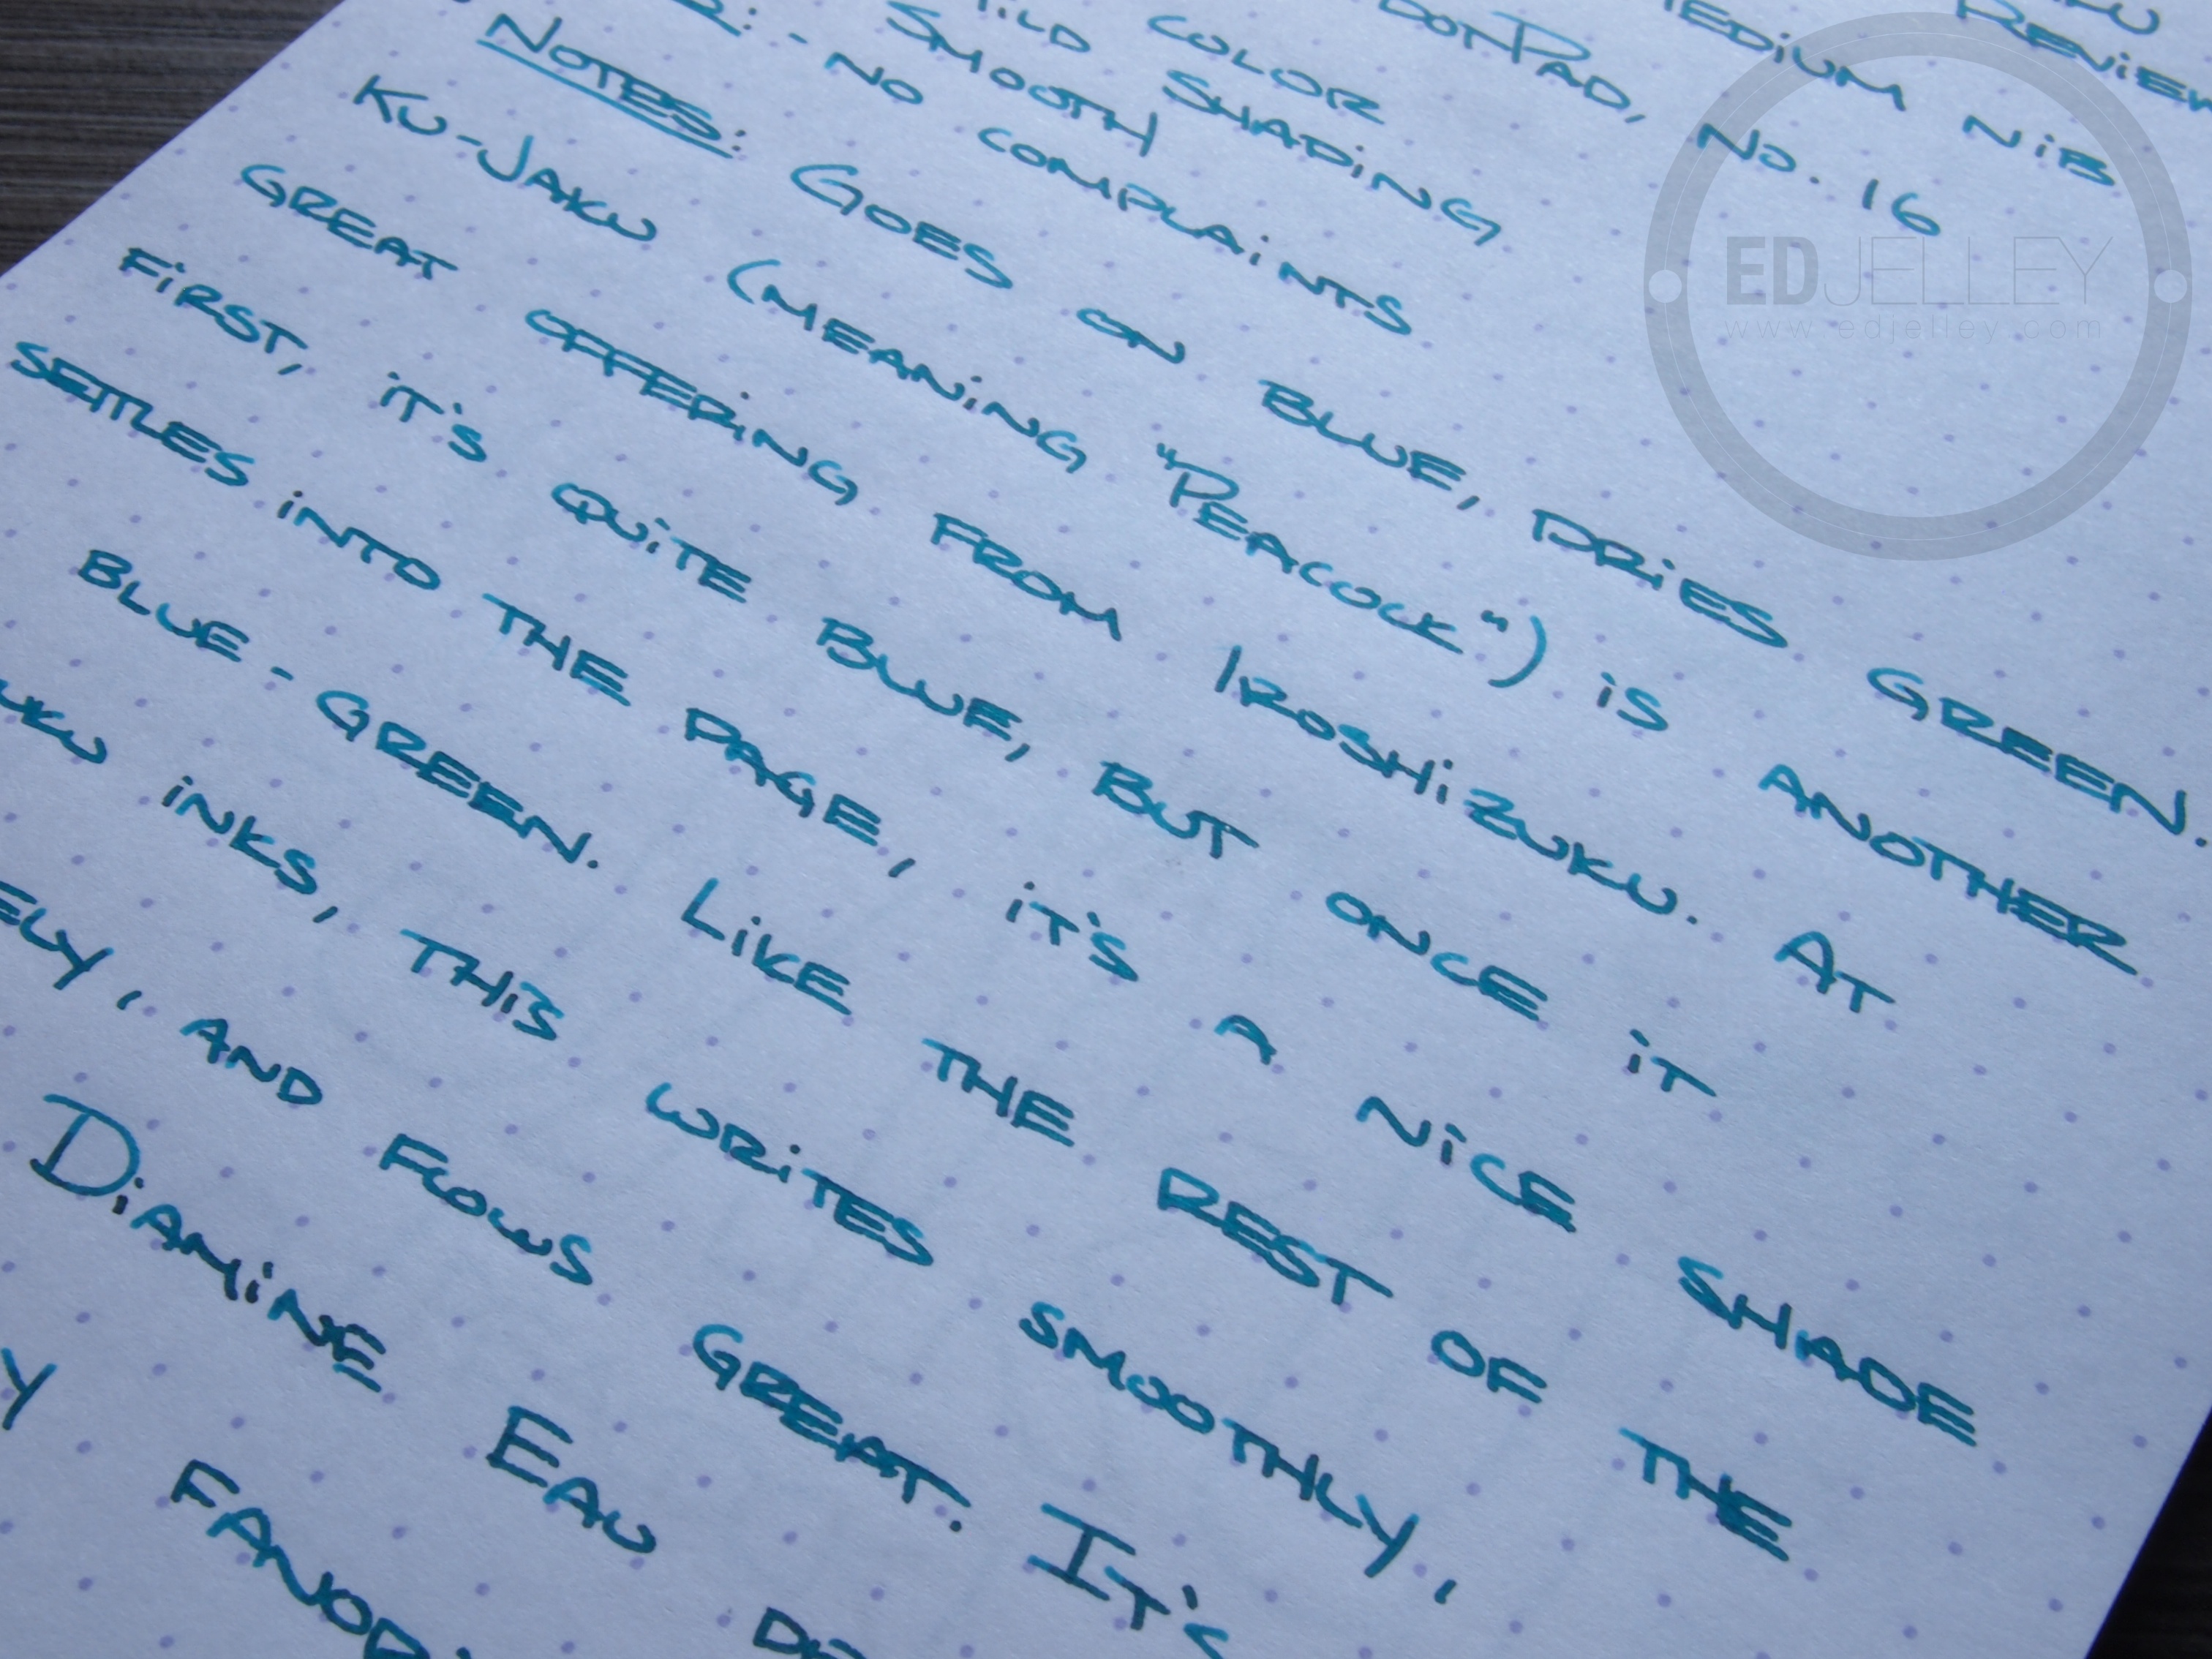 REVIEW
MEDIUM NIB
DOTPAD, No. 16
COLOR
MILD SHADING
SMOOTH
- NO COMPLAINTS
NOTES: GOES ON BLUE, DRiES GREEN.
KU-JAKU (MEANiNG "PEACOCK") iS ANOTHER
GREAT OFFERiNG FROM IROSHiZUKU. AT
FiRST, iT'S QUiTE BLUE, BUT ONCE iT
SETTLES iNTO THE PAGE, iT'S A NiCE SHADE
BLUE-GREEN. LiKE THE REST OF THE
UKU iNKS, THiS WRiTES SMOOTHLY,
ELY, AND FLOWS GREAT. IT'S
DiAMiNE EAU DE
Y FAVORi
EDJELLEY
www.edjelley.com